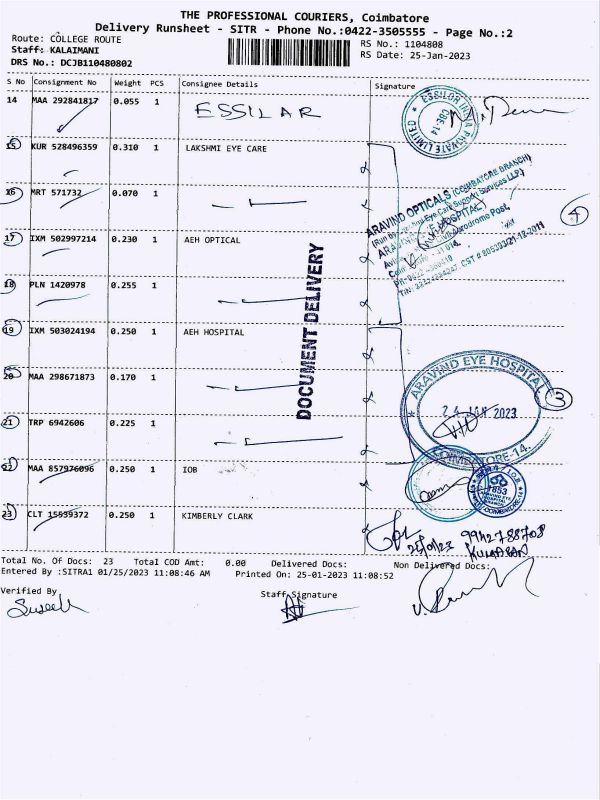 THE PROFESSIONAL COURIERS, Coimbatore
Delivery Runsheet - SITR - Phone No.:0422-3505555 - Page No.:2
Route: COLLEGE ROUTE
Staff: KALAIMANI
DRS No.: DCJB110480802
RS No.: 1104808
RS Date: 25-Jan-2023
S No Consignment No Weight PCS Consignee Details Signature
14 MAA 292841817 0.055 1 ESSILAR
15 KUR 528496359 0.310 1 LAKSHMI EYE CARE
16 MRT 571732 0.070 1
17 IXM 502997214 0.230 1 AEH OPTICAL
18 PLN 1420978 0.255 1
19 IXM 503024194 0.250 1 AEH HOSPITAL
20 MAA 298671873 0.170 1
21 TRP 6942606 0.225 1
22 MAA 857976096 0.250 1 IOB
23 CLT 15539372 0.250 1 KIMBERLY CLARK
DOCUMENT DELIVERY
PRIVATE LIMITED
CBE-14
ARAVIND OPTICALS (COIMBATORE BRANCH)
4
ARAVIND EYE HOSPITAL
24 JAN 2023
COIMBATORE-14.
3
25/01/23 9942788708
KUMARAN
Total No. Of Docs: 23 Total COD Amt: 0.00 Delivered Docs: Non Delivered Docs:
Entered By :SITRA1 01/25/2023 11:08:46 AM Printed On: 25-01-2023 11:08:52
Verified By
Staff Signature